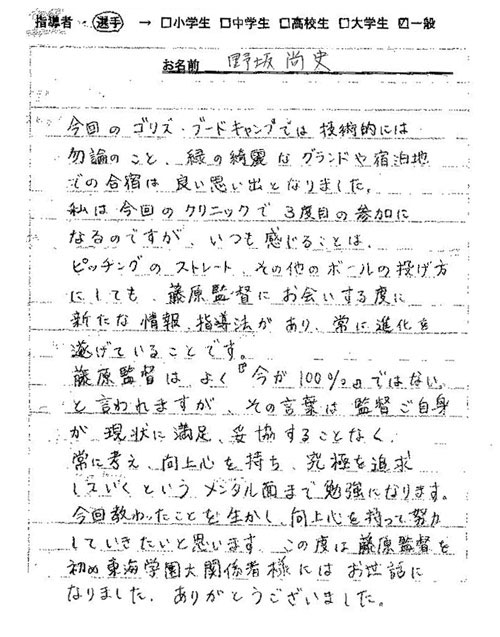 指導者・選手 → □小学生 □中学生 □高校生 □大学生 ☑一般
お名前 野坂 尚史
今回のゴリズ・ブートキャンプでは技術的には
勿論のこと、緑の綺麗なグランドや宿泊地
での合宿は良い思い出となりました。
私は今回のクリニックで3度目の参加に
なるのですが、いつも感じることは、
ピッチングのストレート、その他のボールの投げ方
にしても、藤原監督にお会いする度に
新たな情報、指導法があり、常に進化を
遂げていることです。
藤原監督はよく『今が100%』ではない。
と言われますが、その言葉は監督ご自身
が現状に満足、妥協することなく、
常に考え、向上心を持ち、究極を追求
していくというメンタル面まで勉強になります。
今回教わったことを生かし、向上心を持って努力
していきたいと思います。この度は藤原監督を
初め東海学園大関係者様にはお世話に
なりました。ありがとうございました。